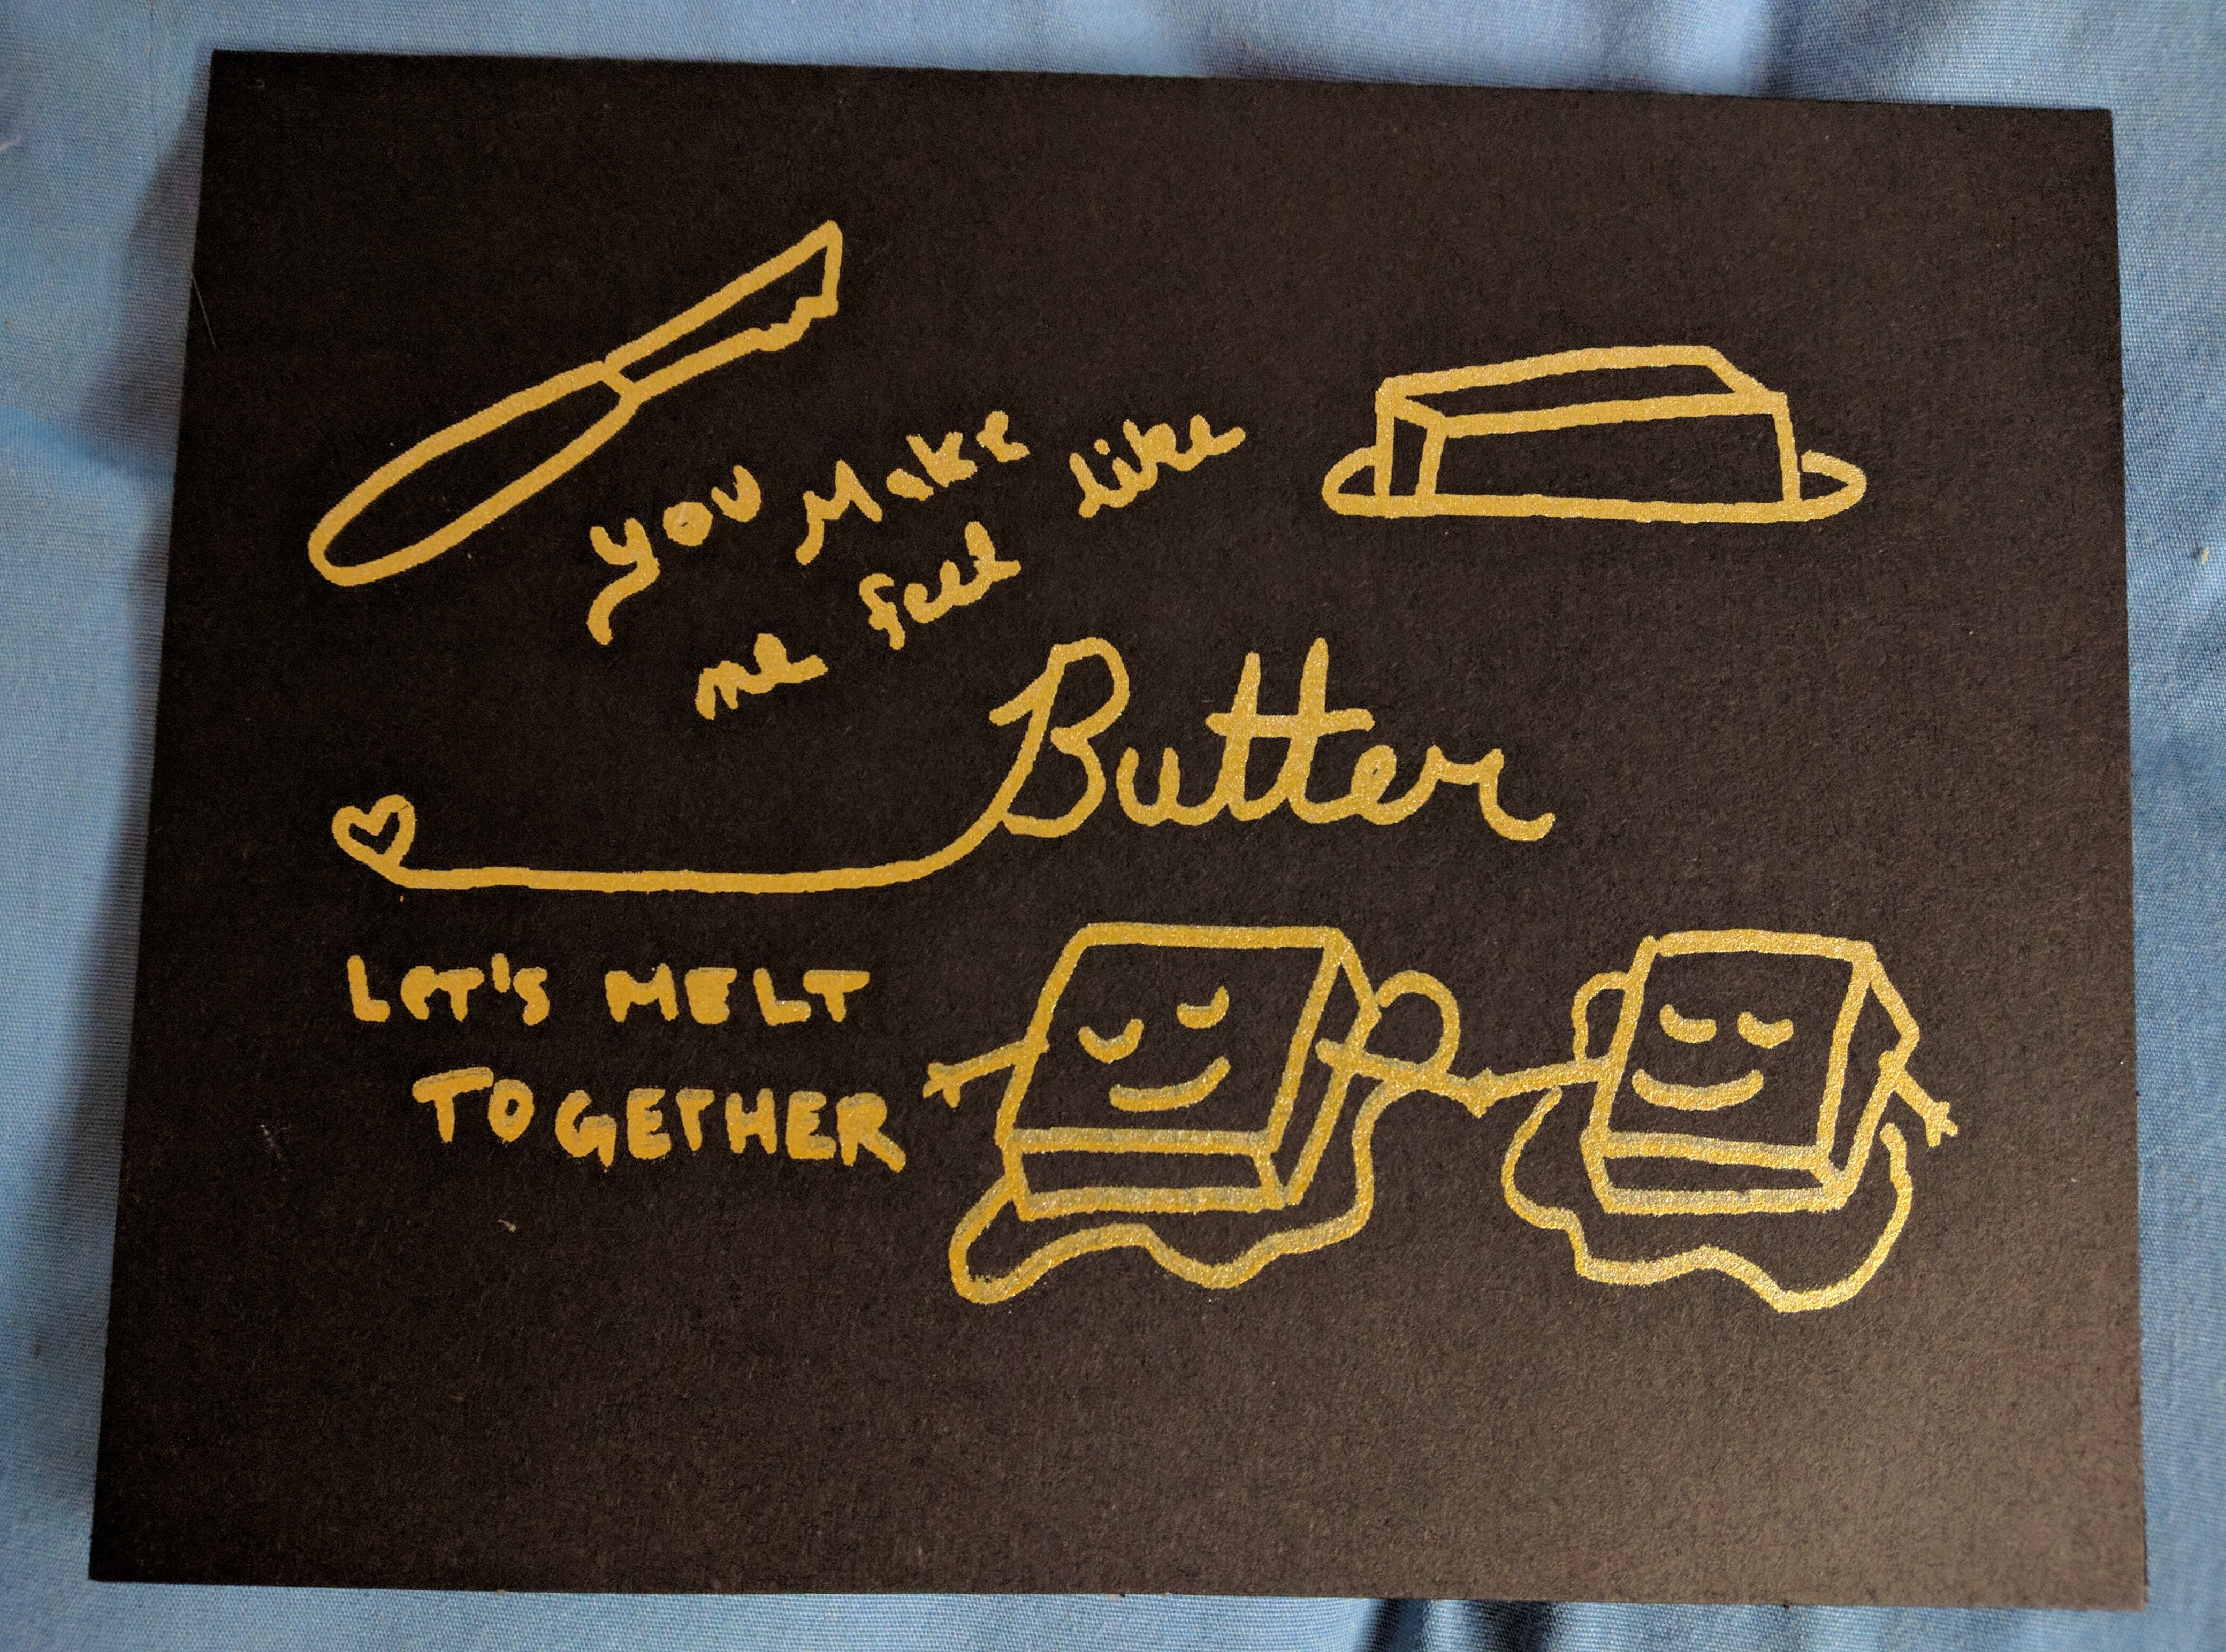 you Make
me feel like
Butter
LET'S MELT
TOGETHER